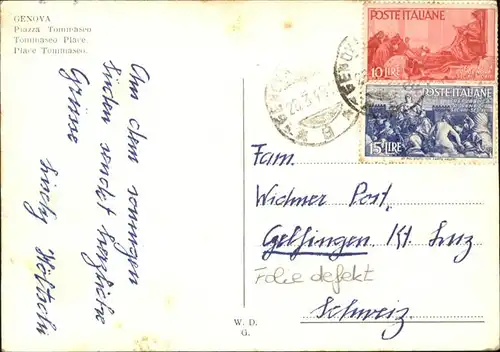 GENOVA
Piazza Tommaseo
Tommaseo Place.
Place Tommaseo.
Aus dem sonnigen
Süden sendet herzliche
Grüsse
POSTE ITALIANE
10 LIRE
POSTE ITALIANE
15 LIRE
Fam.
Widmer Post,
Gelfingen Kt. Luz
Folie defekt
Schweiz
W. D.
G.